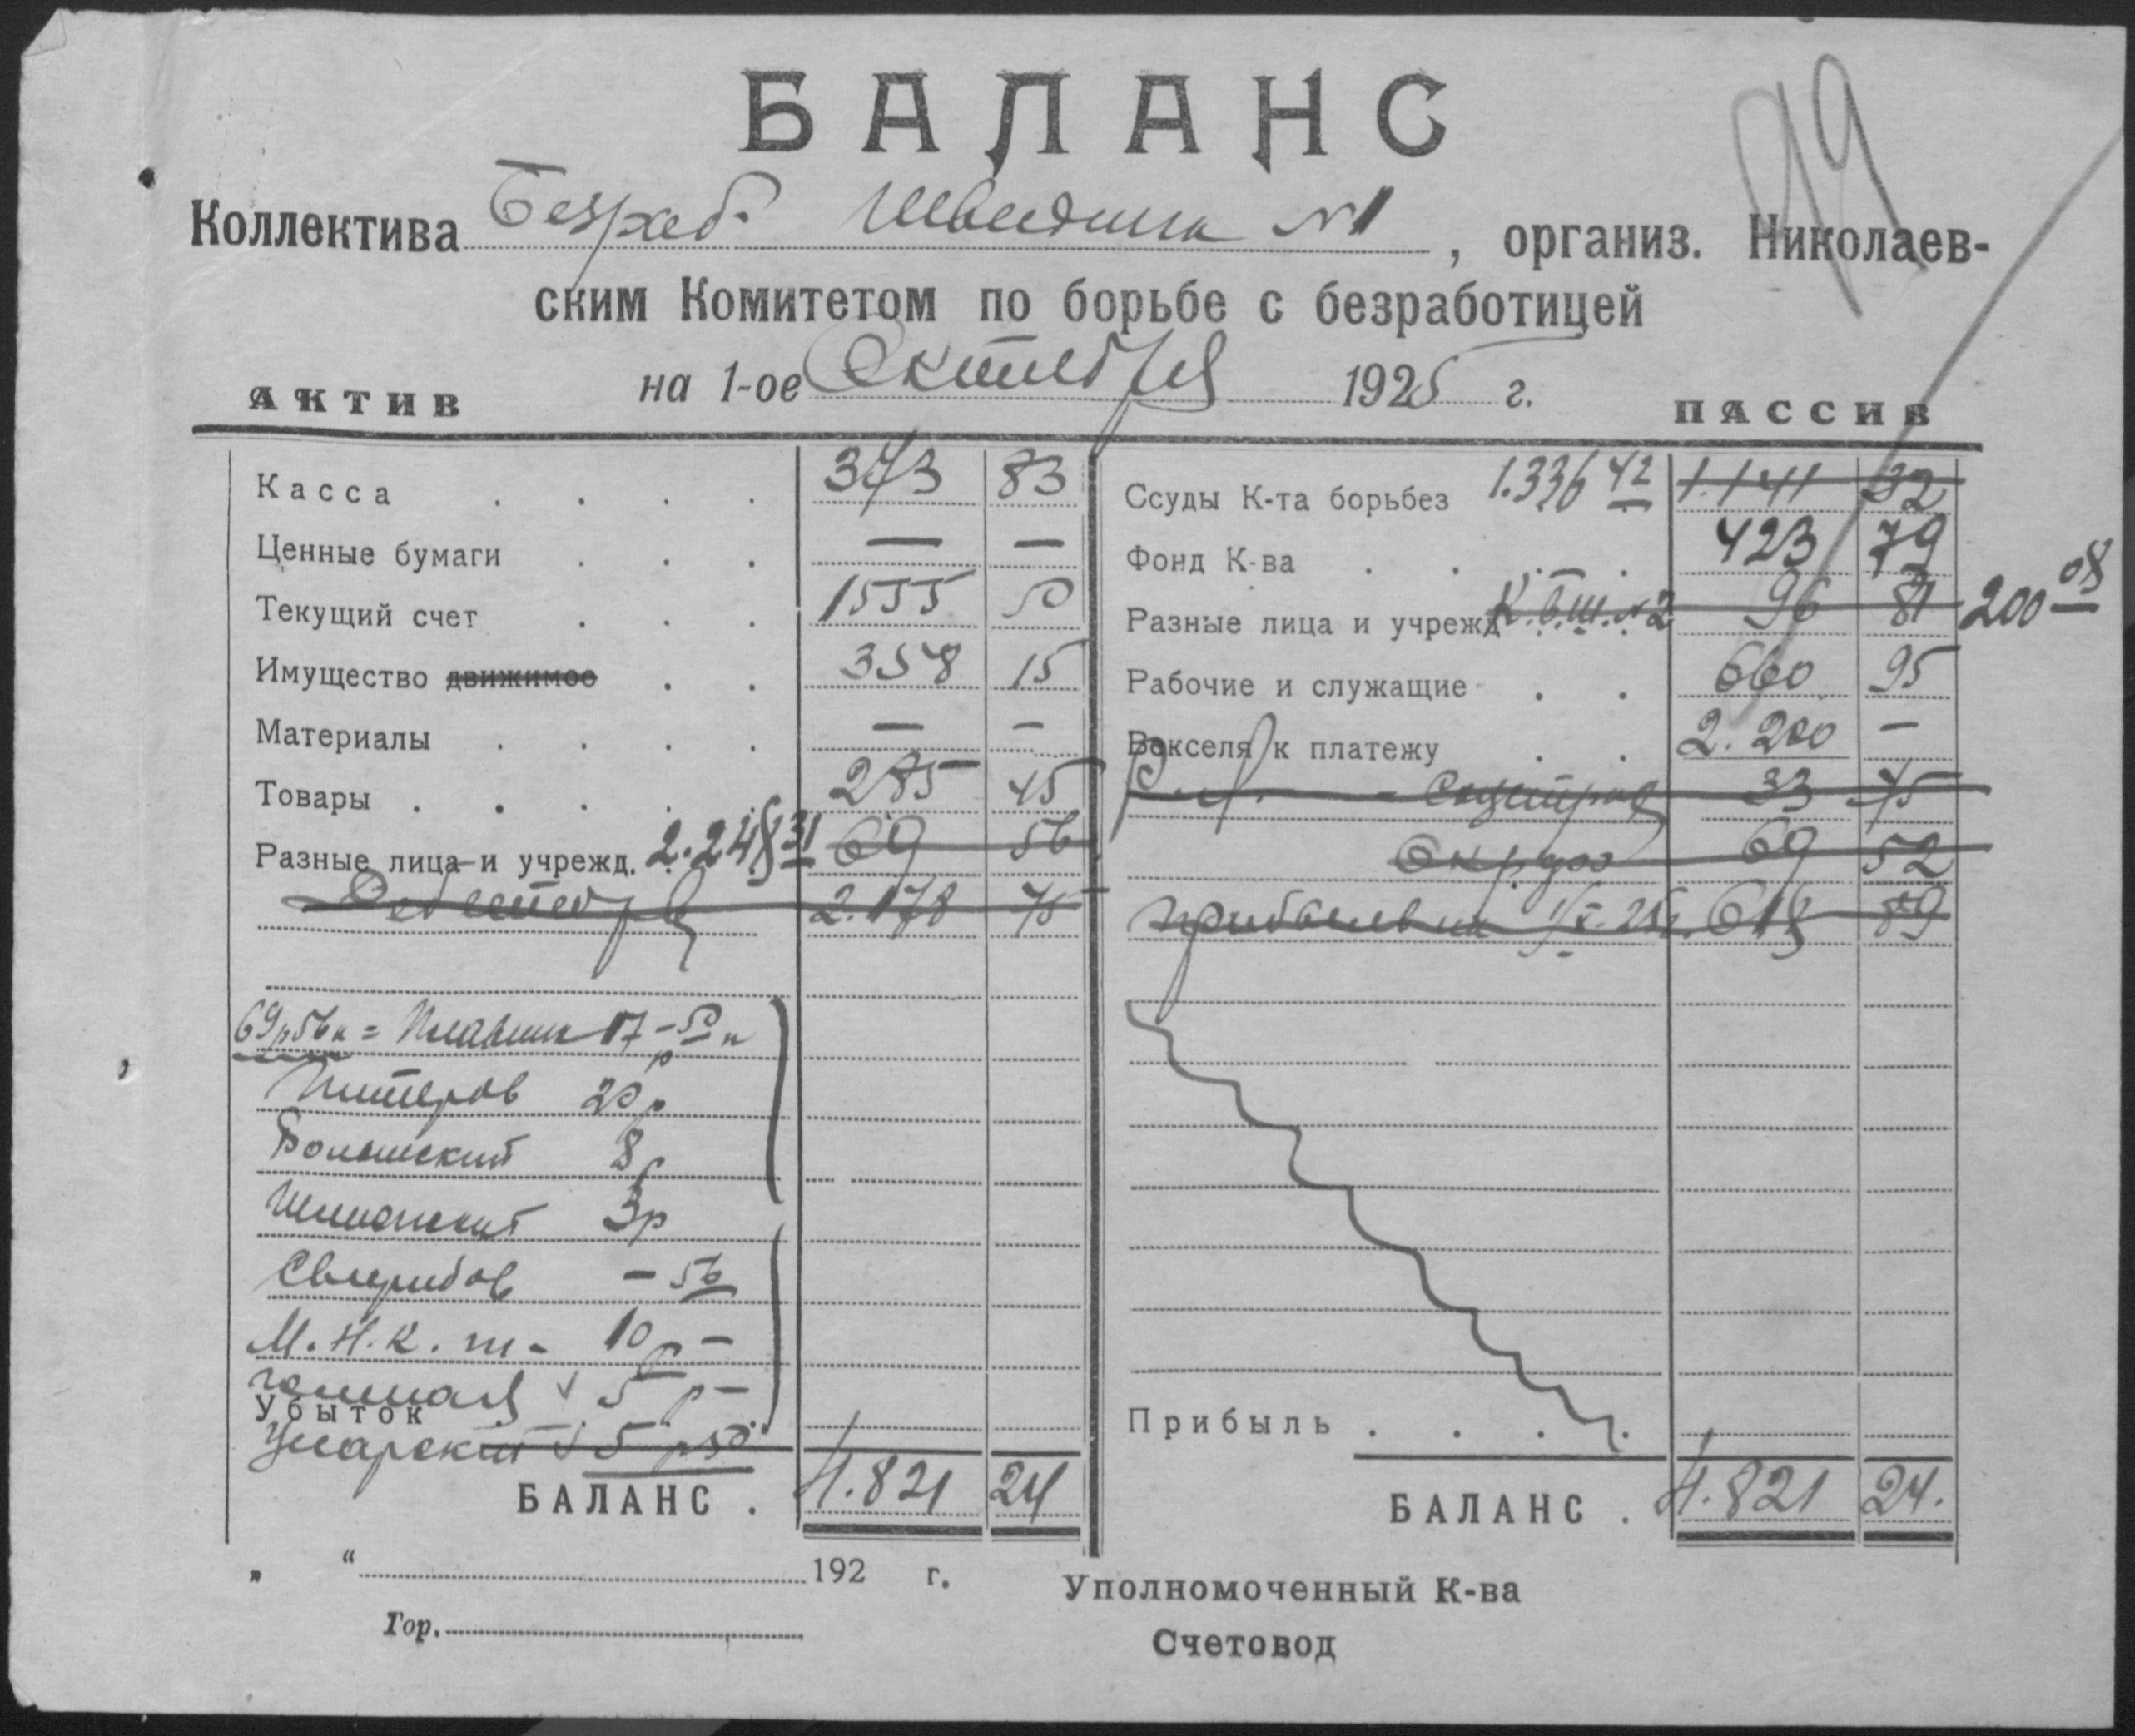 99
БАЛАНС
Коллектива Безраб. Швейдшик №1, организ. Николаев-
ским Комитетом по борьбе с безработицей
на 1-ое Октября 1925 г.
АКТИВ ПАССИВ
Касса . . . . 373 83
Ценные бумаги . . . — —
Текущий счет . . . 1555 50
Имущество движимое . . 358 15
Материалы . . . . — —
Товары . . . . . 285 45
Разные лица и учрежд. 2.248 31 69 56
2.178 75
69р56к = 17 р - 50 к
Питеров 20 р
8
3р
Свиридов — 56
М.Н.К.Ш - 10 р —
5 р —
Убыток
5 р 50
БАЛАНС . 4.821 24
Ссуды К-та борьбез 1.336 42 1.141 32
Фонд К-ва . . . . 423 79
Разные лица и учрежд К.б.ш. №2 96 81 200 08
Рабочие и служащие . . 660 95
Векселя к платежу . . 2.200 —
Соцстрах 33 45
69 52
Прибыль на 1/X-25г. 618 89
Прибыль . . . .
БАЛАНС . 4.821 24.
„ “ 192 г.
Гор.
Уполномоченный К-ва
Счетовод